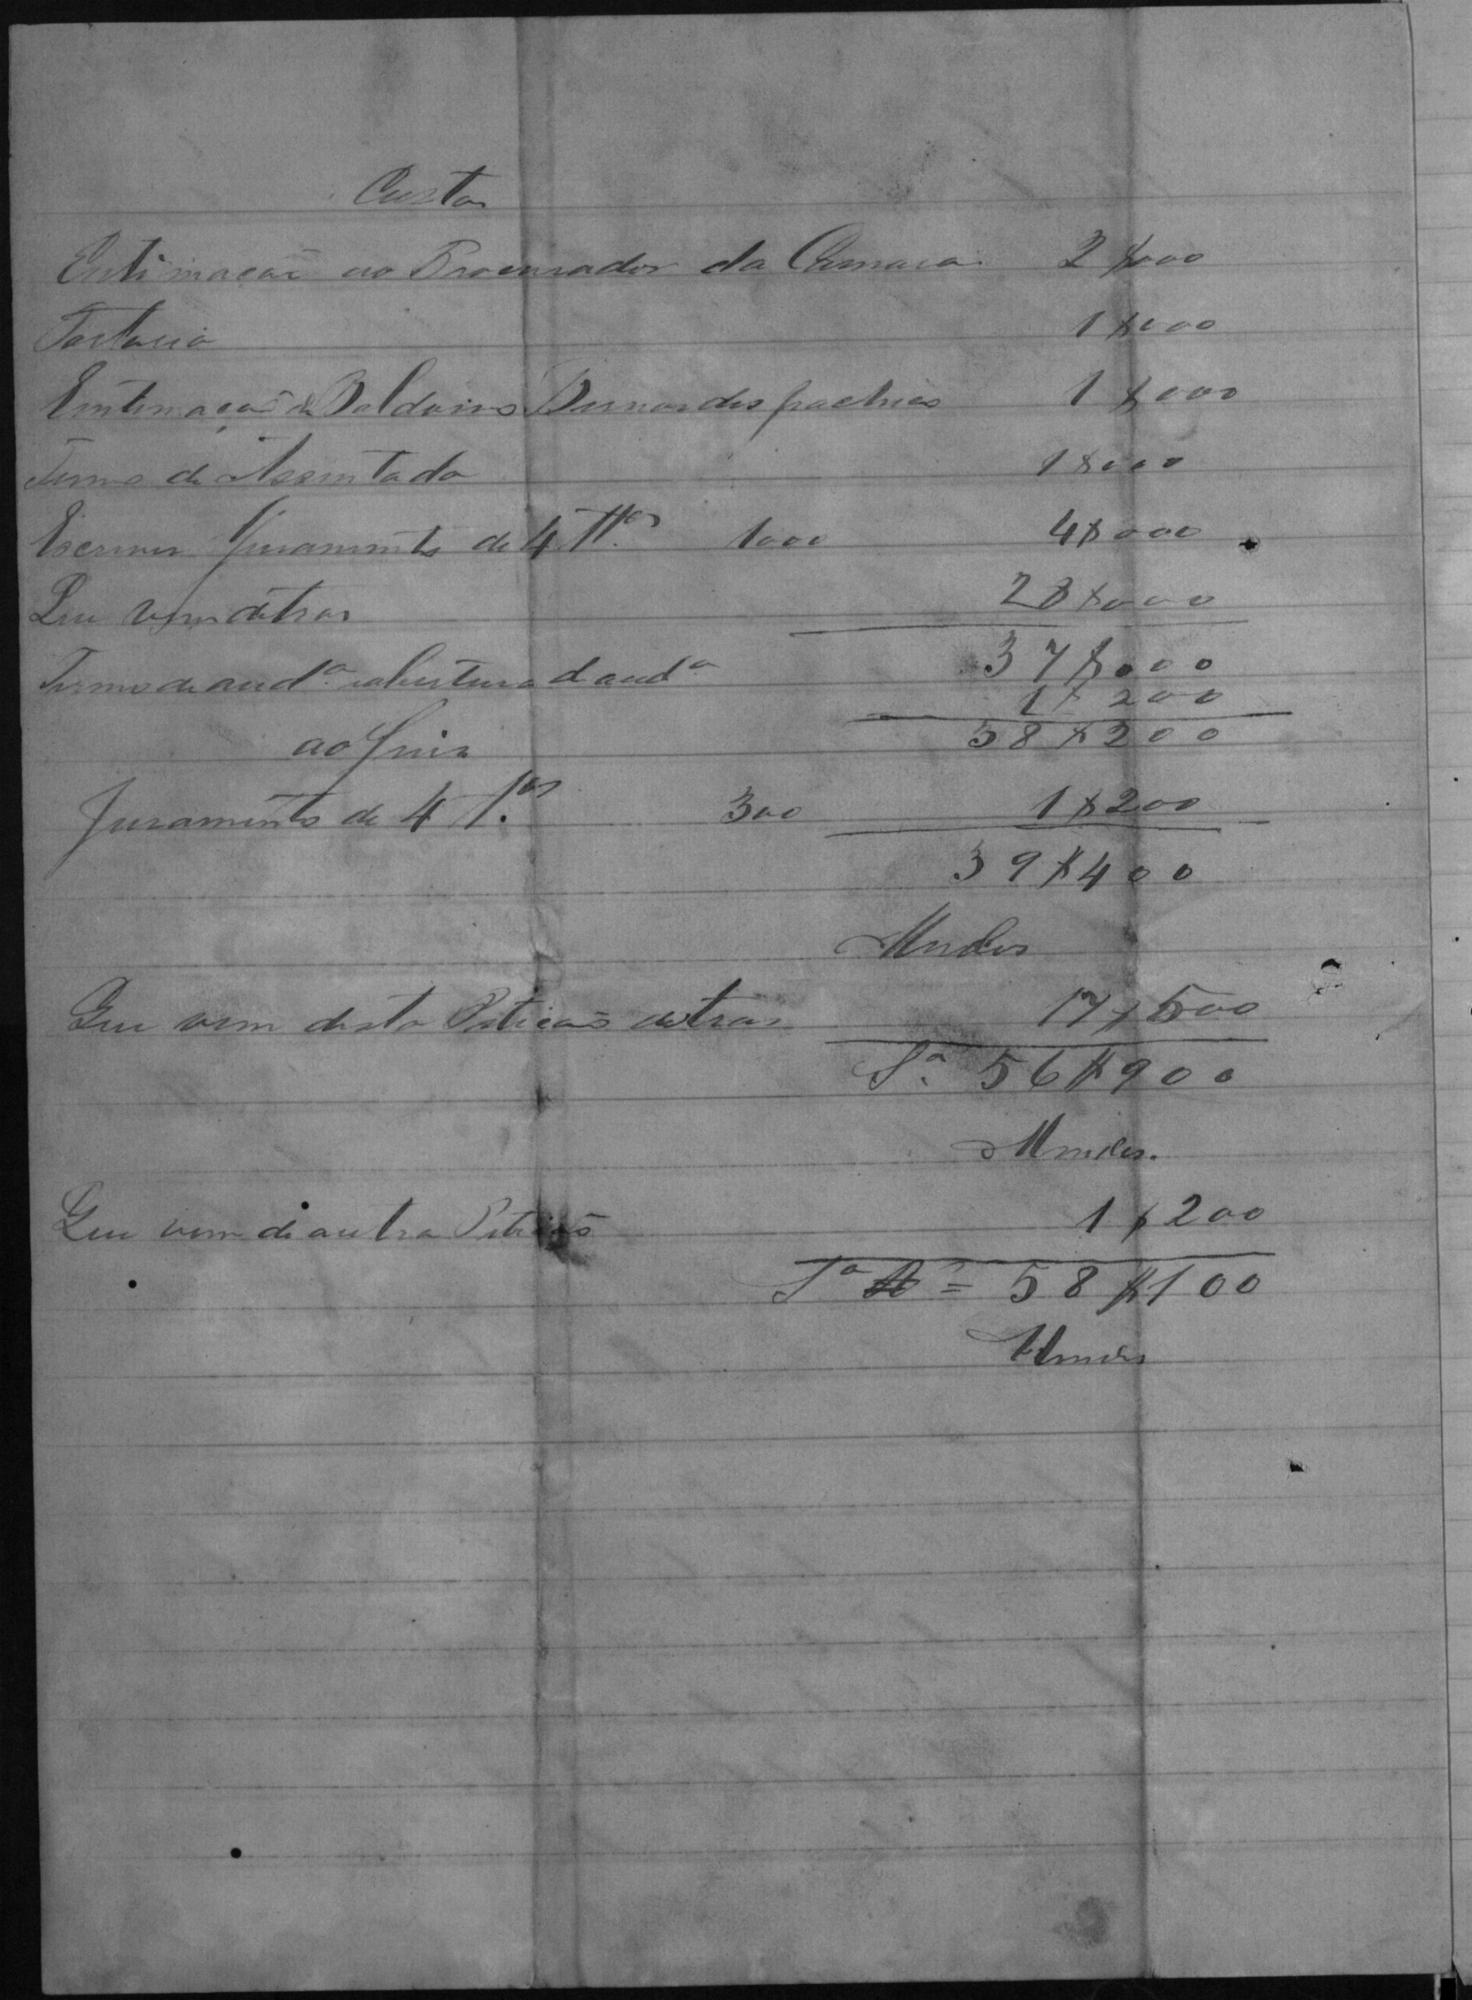 Custas
Entimação ao Procurador da Camara 2$000
1$000
Entimação de Baldoino Bernardes 1$000
Termo de Assentada 1$000
Escrever Juramento de 4 Ttas 1000 4$000
Que vem atras 28$000
37$000
Termo de audª abertura d audª 1$200
38$200
ao Juiz
Juramento de 4 Tas 300 1$200
39$400
Mendes
Que vem desta Petição atras 17$500
Sª 56$900
Mendes.
Que vem de outra Petição 1$200
Sª = 58$100
Mendes